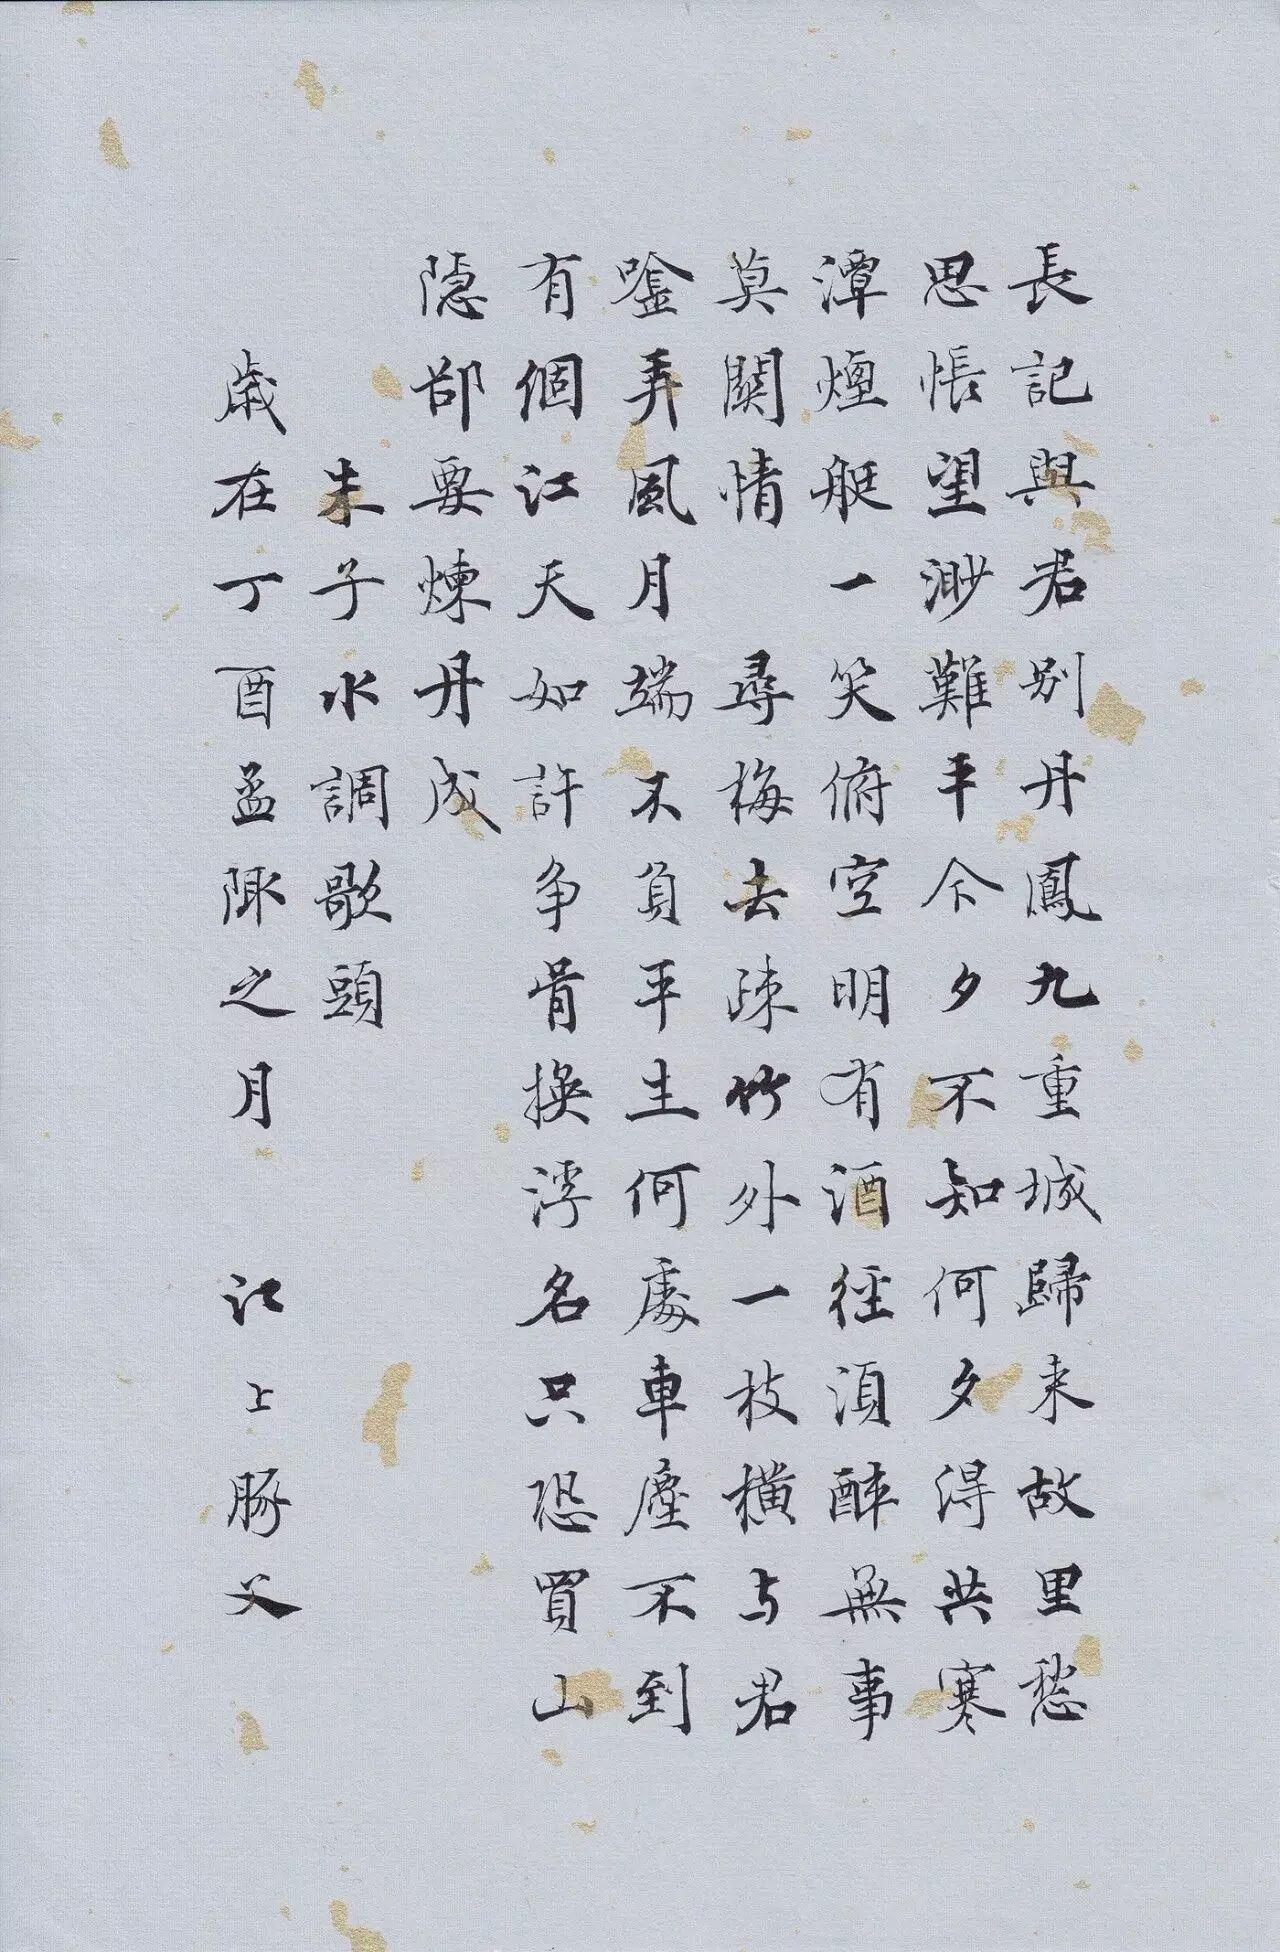 長記與君別丹鳳九重城歸来故里愁
思悵望渺難平今夕不知何夕得共寒
潭煙艇一笑俯空明有酒徑須醉無事
莫關情　尋梅去疎竹外一枝橫与君
唫弄風月端不負平生何處車塵不到
有個江天如許争肯換浮名只恐買山
隱郤要煉丹成
朱子水調歌頭
歲在丁酉孟陬之月　江上豚父